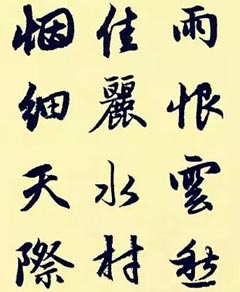 雨恨雲愁
佳麗水村
烟細天際